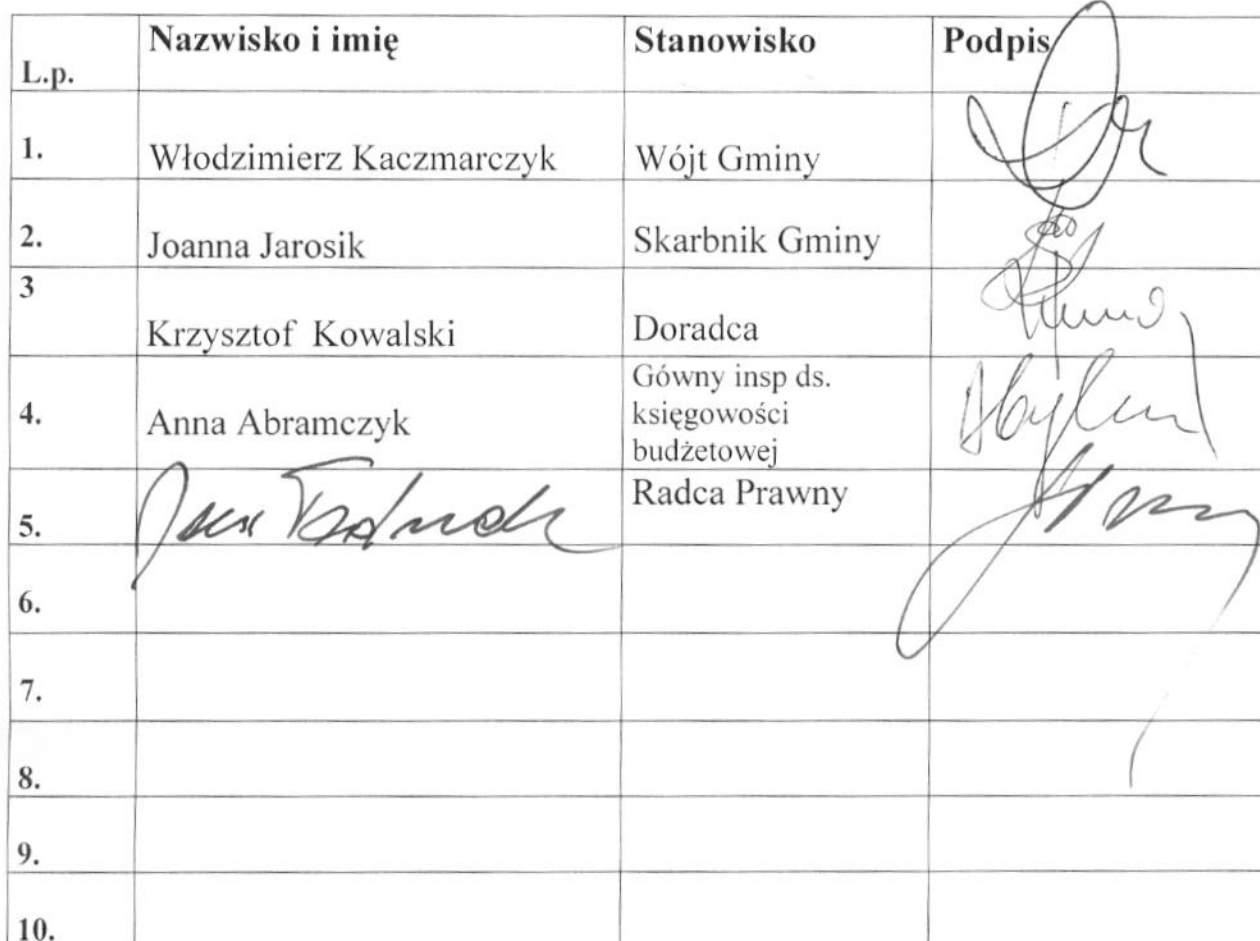 L.p. Nazwisko i imię Stanowisko Podpis
1. Włodzimierz Kaczmarczyk Wójt Gminy
2. Joanna Jarosik Skarbnik Gminy
3 Krzysztof Kowalski Doradca
4. Anna Abramczyk Gówny insp ds.
księgowości
budżetowej
5. Radca Prawny
6.
7.
8.
9.
10.